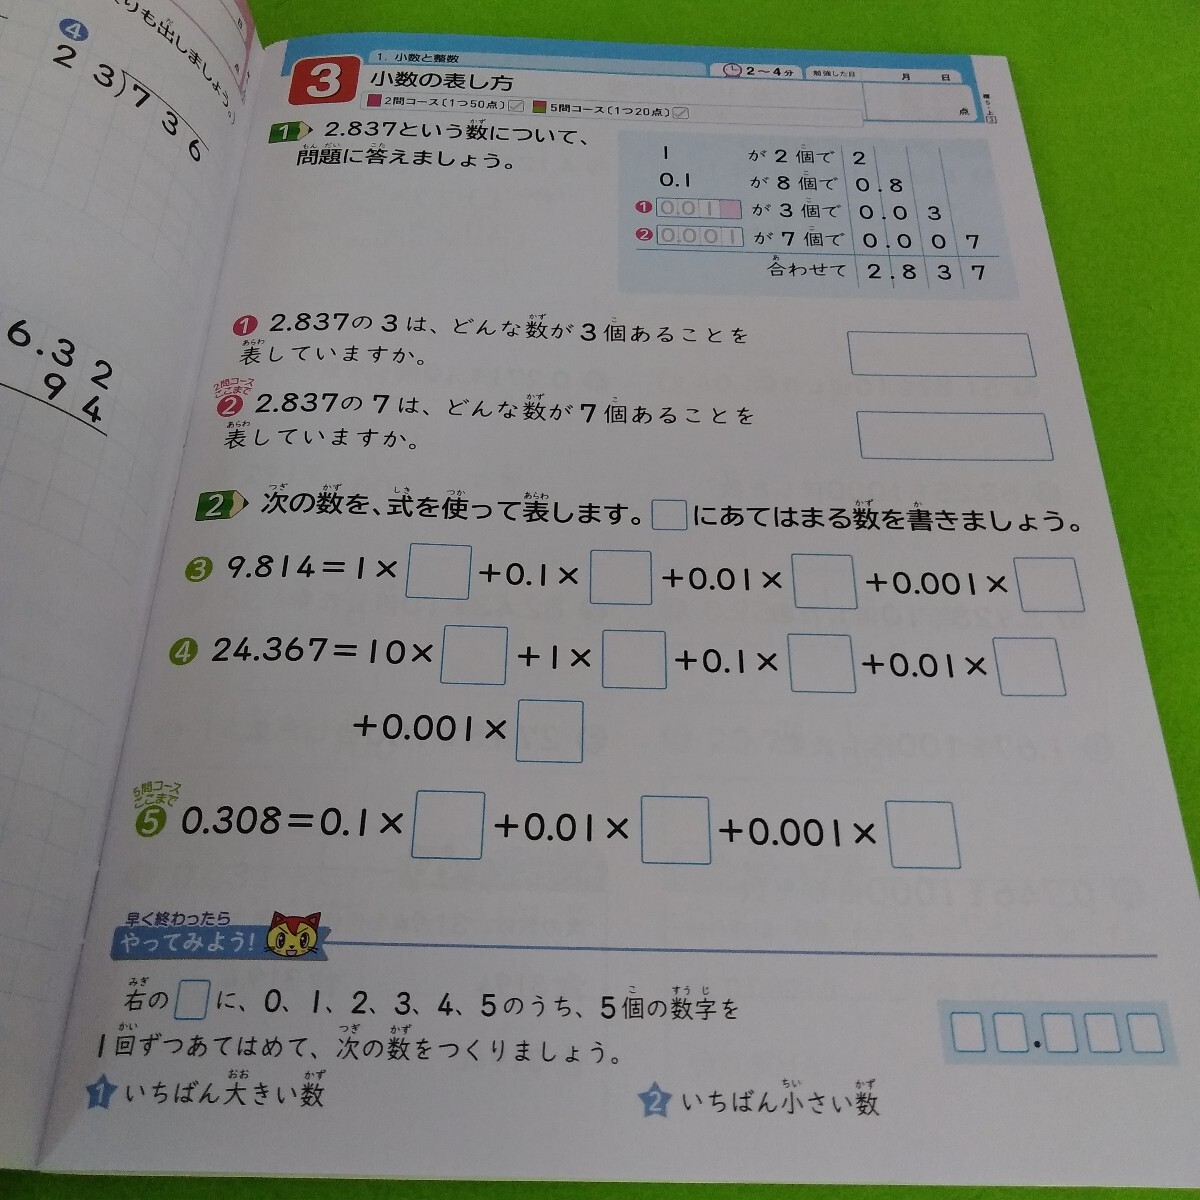 りも出しましょう。
4
23)736
6.32
94
3
1. 小数と整数
小数の表し方
2〜4分
勉強した日 月 日
2問コース(1つ50点)
5問コース(1つ20点)
点
1 2.837という数について、
問題に答えましょう。
1 が2個で 2
0.1 が8個で 0.8
1 0.01 が3個で 0.03
2 0.001 が7個で 0.007
合わせて 2.837
1 2.837の3は、どんな数が3個あることを
表していますか。
2問コース
ここまで
2 2.837の7は、どんな数が7個あることを
表していますか。
2 次の数を、式を使って表します。□にあてはまる数を書きましょう。
3 9.814=1×□+0.1×□+0.01×□+0.001×□
4 24.367=10×□+1×□+0.1×□+0.01×□
+0.001×□
5問コース
ここまで
5 0.308=0.1×□+0.01×□+0.001×□
早く終わったら
やってみよう!
右の□に、0、1、2、3、4、5のうち、5個の数字を
1回ずつあてはめて、次の数をつくりましょう。
□□.□□□
1 いちばん大きい数
2 いちばん小さい数